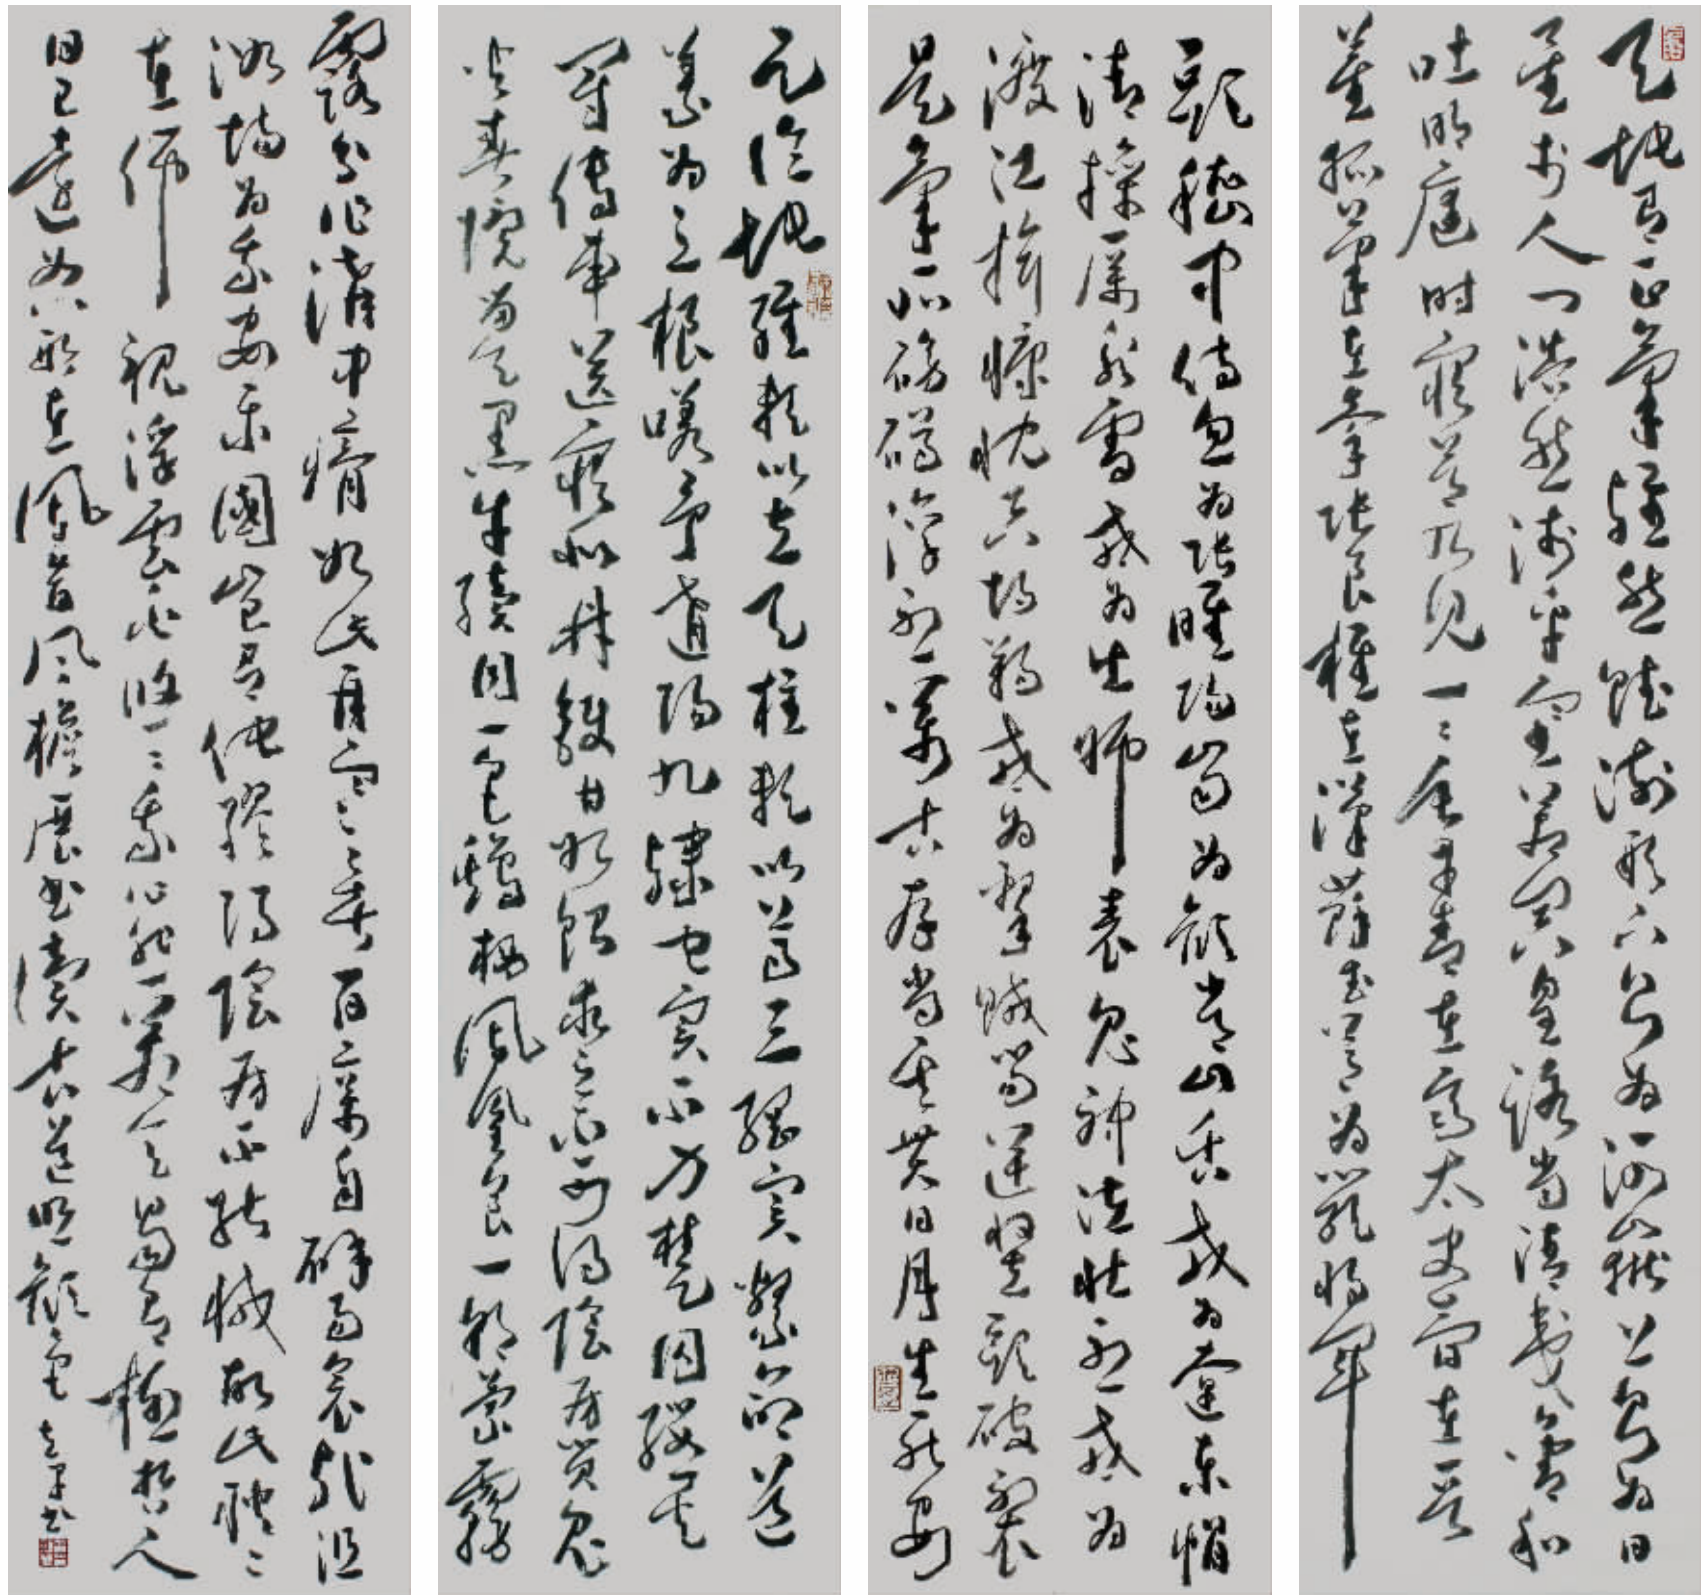 天地有正氣雜然賦流形下則為河嶽上則為日
星於人曰浩然沛乎塞蒼冥皇路當清夷含和
吐明庭時窮節乃見一一垂丹青在齊太史簡在晉
董狐筆在秦張良椎在漢蘇武節為嚴將軍
頭嵇中侍血為張睢陽齒為顏常山舌或為遼東帽
清操厲冰雪或為出師表鬼神泣壯烈或為
渡江楫慷慨吞胡羯或為擊賊笏逆豎頭破裂
是氣所磅礴凜烈萬古存當其貫日月生死安
足論地維賴以立天柱賴以尊三綱實繫命道
義為之根嗟予遘陽九隸也實不力楚囚纓其
冠傳車送窮北鼎鑊甘如飴求之不可得陰房闃鬼
火春院閟天黑牛驥同一皂雞棲鳳凰食一朝蒙霧
露分作溝中瘠如此再寒暑百沴自辟易哀哉沮
洳場為我安樂國豈有他繆陽陰不能賊顧此耿耿
在仰視浮雲白悠悠我心悲蒼天曷有極哲人
日已遠典刑在夙昔風檐展書讀古道照顏色